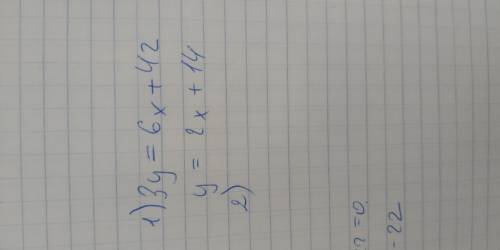 1) 3y = 6x + 42
y = 2x + 14
2)
=0
-22